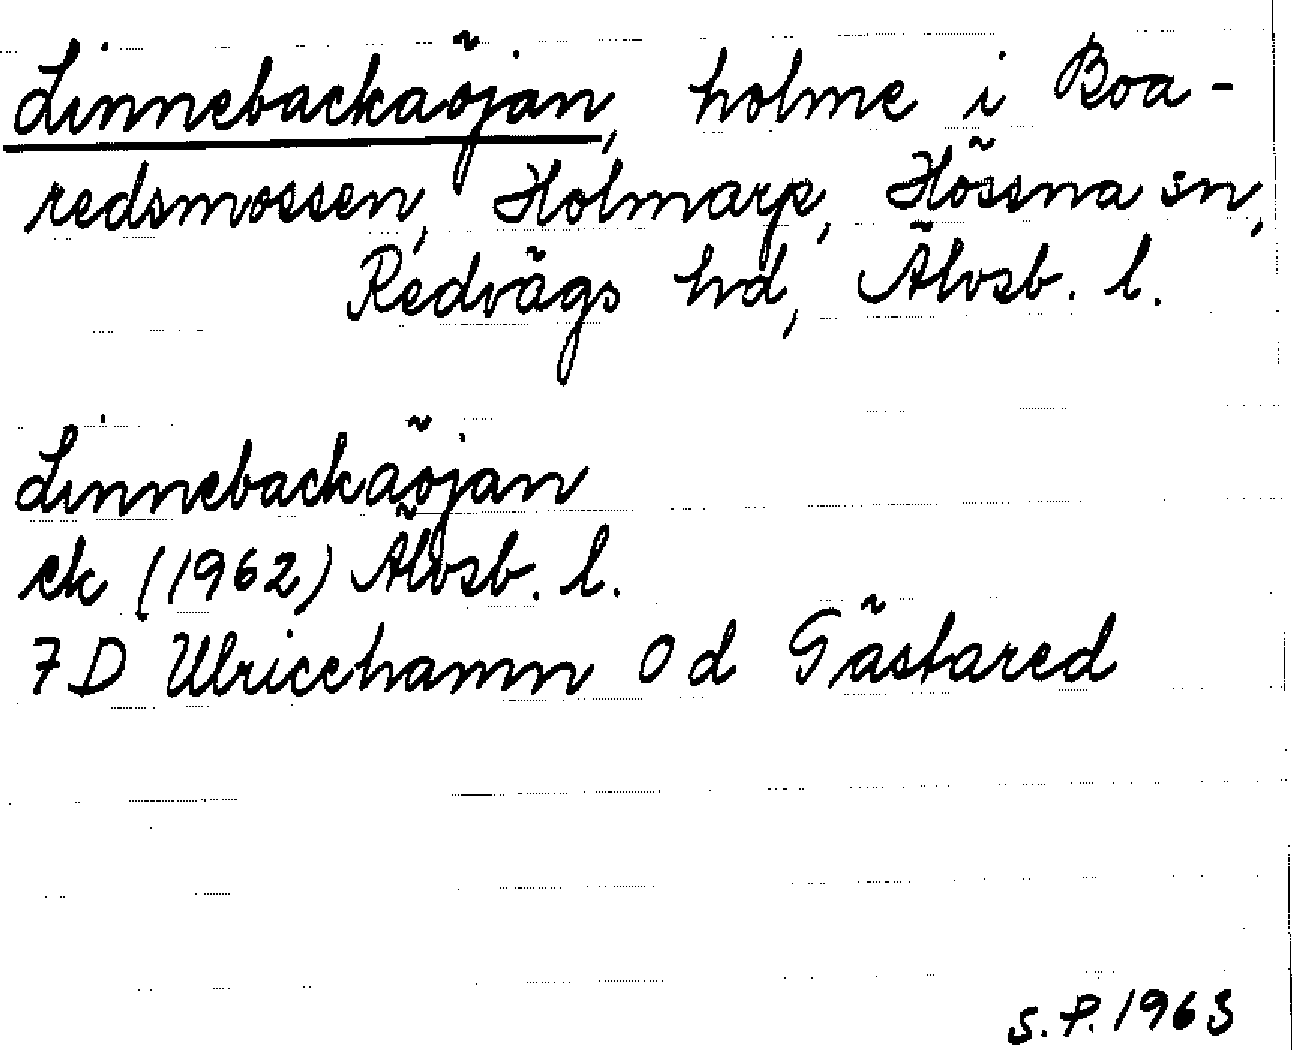 Linnebackaöjan, holme i Boa-
redsmossen, Holmarp, Hössna sn,
Redvägs hd, Älvsb. l.
Linnebackaöjan
ek (1962) Älvsb. l.
7D Ulricehamn 0 d Gästared
S.P. 1963